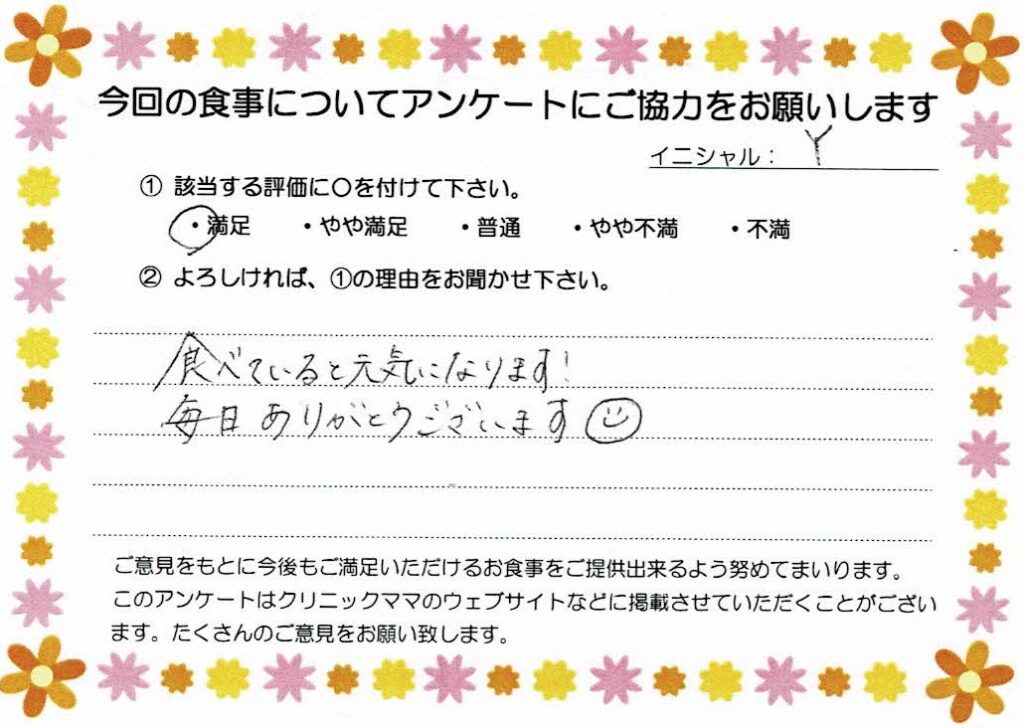 今回の食事についてアンケートにご協力をお願いします
イニシャル： Y
① 該当する評価に〇を付けて下さい。
・満足 ・やや満足 ・普通 ・やや不満 ・不満
② よろしければ、①の理由をお聞かせ下さい。
食べていると元気になります!
毎日ありがとうございます
ご意見をもとに今後もご満足いただけるお食事をご提供出来るよう努めてまいります。
このアンケートはクリニックママのウェブサイトなどに掲載させていただくことがござい
ます。たくさんのご意見をお願い致します。